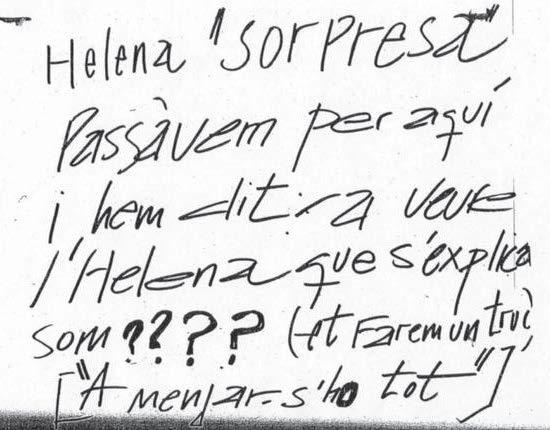 Helena "sorpresa"
Passàvem per aquí
i hem dit:-a veure
l'Helena que s'explica
som ???? (-et Farem un truc
["A menjar-s'ho tot"]